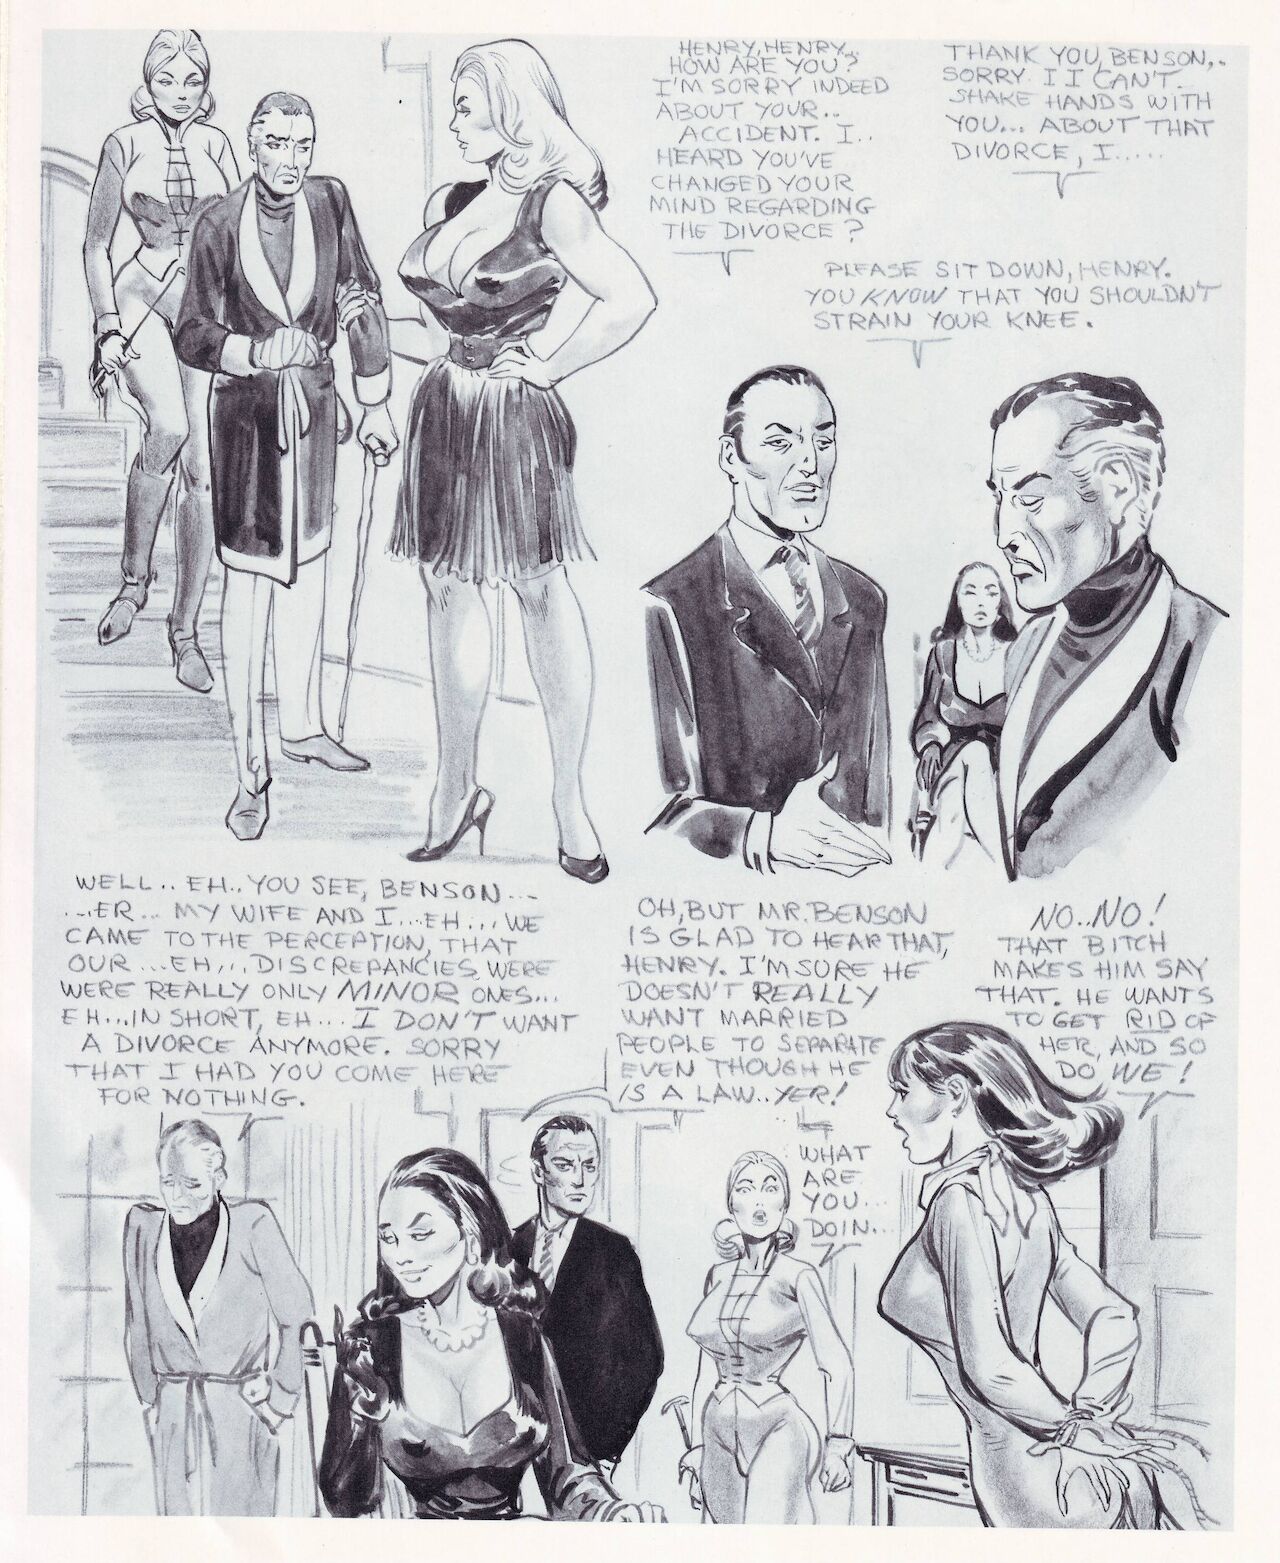 HENRY, HENRY..
HOW ARE YOU?
I'M SORRY INDEED
ABOUT YOUR..
ACCIDENT. I..
HEARD YOU'VE
CHANGED YOUR
MIND REGARDING
THE DIVORCE?
THANK YOU, BENSON,.
SORRY. I I CAN'T
SHAKE HANDS WITH
YOU... ABOUT THAT
DIVORCE, I.....
PLEASE SIT DOWN, HENRY.
YOU KNOW THAT YOU SHOULDN'T
STRAIN YOUR KNEE.
WELL.. EH.. YOU SEE, BENSON...
...ER... MY WIFE AND I...EH... WE
CAME TO THE PERCEPTION, THAT
OUR...EH,,. DISCREPANCIES WERE
WERE REALLY ONLY MINOR ONES...
EH...IN SHORT, EH... I DON'T WANT
A DIVORCE ANYMORE. SORRY
THAT I HAD YOU COME HERE
FOR NOTHING.
OH, BUT MR. BENSON
IS GLAD TO HEAR THAT,
HENRY. I'M SURE HE
DOESN'T REALLY
WANT MARRIED
PEOPLE TO SEPARATE
EVEN THOUGH HE
IS A LAW..YER!
WHAT
ARE
YOU...
DOIN...
NO..NO!
THAT BITCH
MAKES HIM SAY
THAT. HE WANTS
TO GET RID OF
HER, AND SO
DO WE!